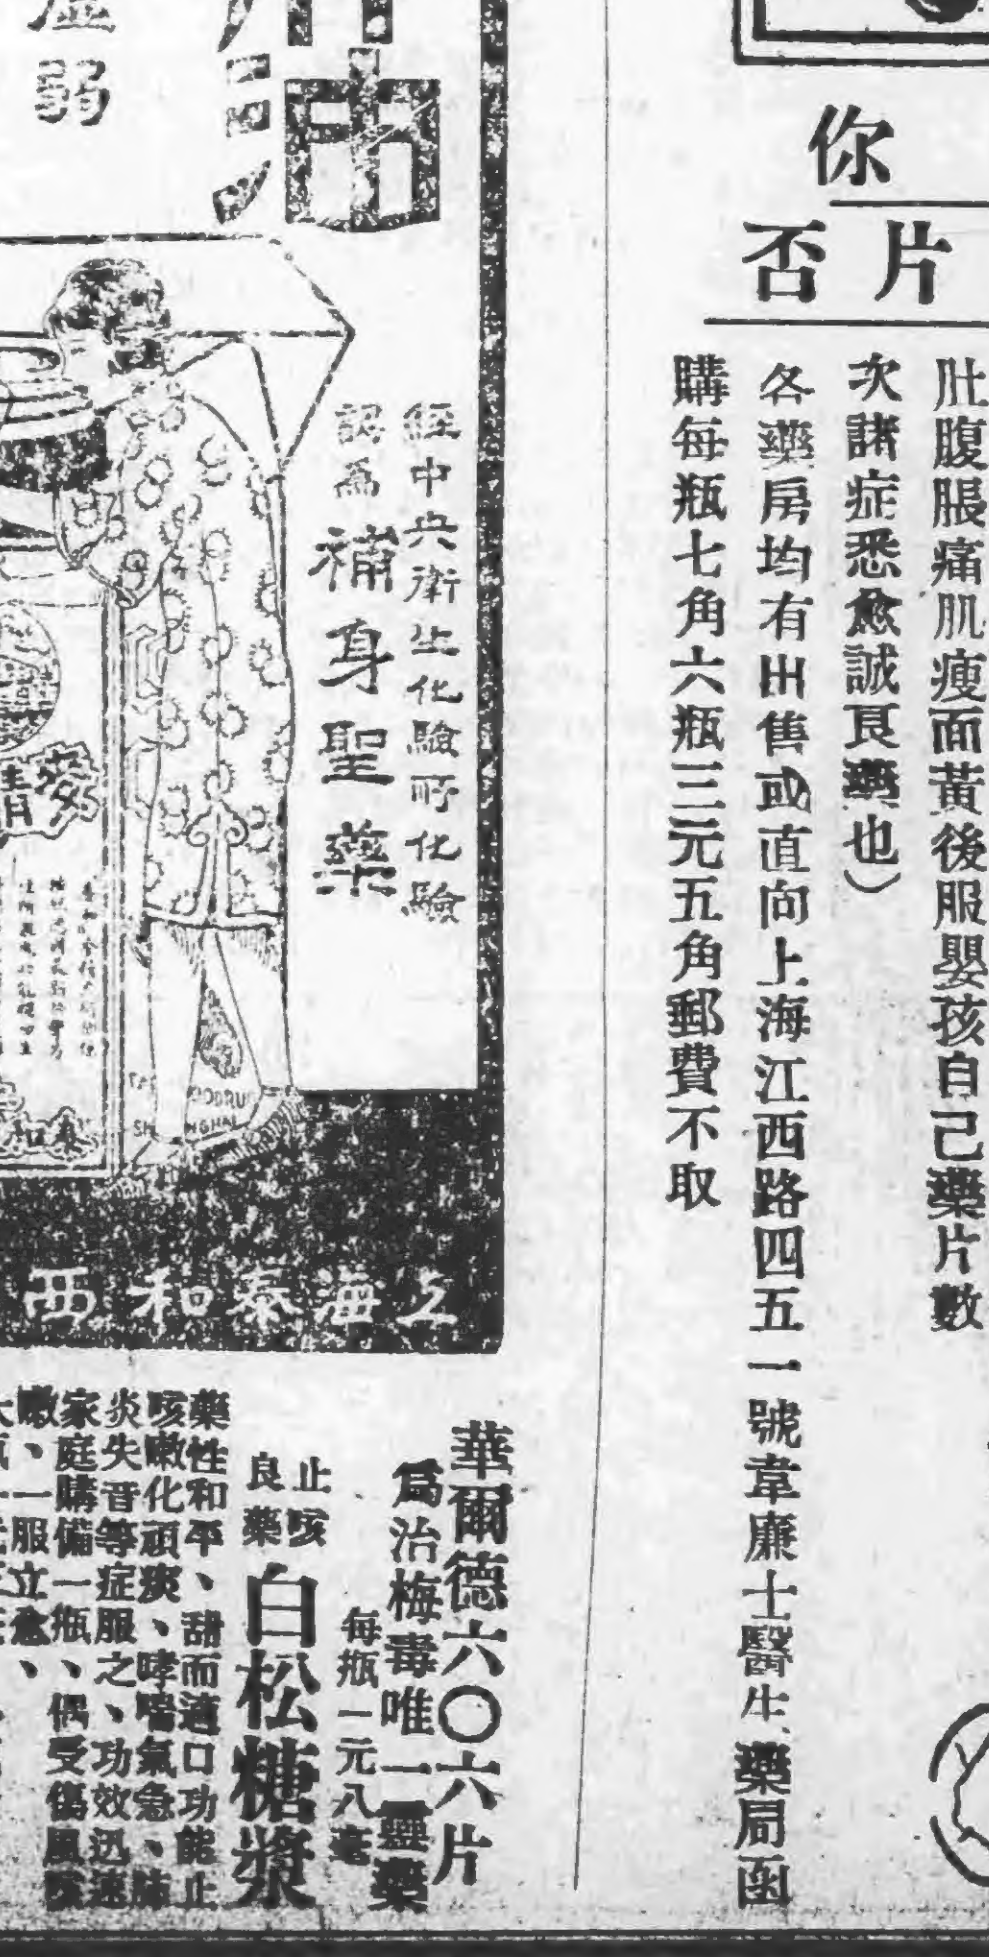 你
片否
肚腹脹痛肌瘦面黃後服嬰孩自己藥片數
次諸症悉愈誠良藥也）
各藥房均有出售或直向上海江西路四五一號韋廉士醫生藥局函
購每瓶七角六瓶三元五角郵費不取
油
虛弱
經中央衛生化驗所化驗
認爲補身聖藥
麥精
泰和
上海泰和西
華爾德六〇六片
爲治梅毒唯一靈藥
每瓶一元八毫
止咳
良藥
白松糖漿
藥性和平、甜而適口功能止
咳嗽化頑痰、哮喘氣急、肺
炎失音等症服之、功效迅速
家庭購備一瓶、偶受傷風咳
嗽、一服立愈、